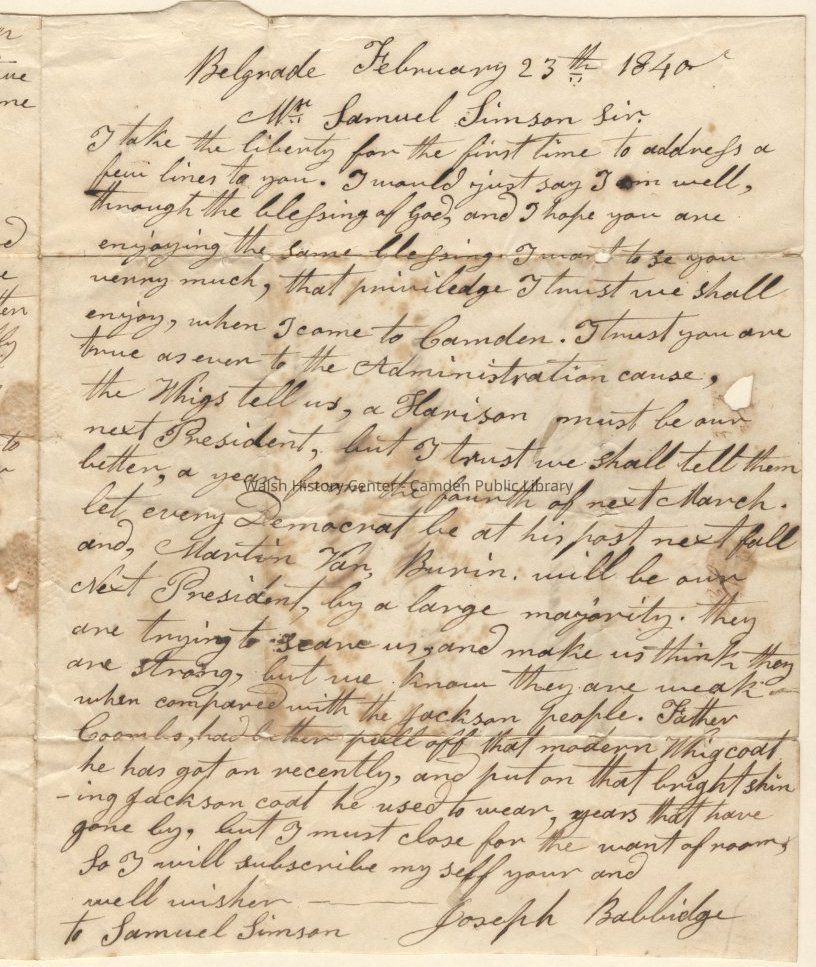 Belgrade February 23th 1840
Mr Samuel Simson Sir.
I take the liberty for the first time to address a
few lines to you. I would just say I am well,
through the blessing of God, and I hope you are
enjoying the same blessing. I want to se you
verry much, that priviledge I trust we shall
enjoy, when I come to Camden. I trust you are
true as ever to the Administration cause,
the Whigs tell us, a Harison must be our
next President, but I trust we shall tell them
better, a year from the fourth of next March.
Walsh History Center - Camden Public Library
let every Democrat be at his post next fall
and, Martin Van, Burin. will be our
Next President, by a large majority. they
are trying to scare us, and make us think they
are strong, but we know they are weak
when compared with the Jackson people. Father
Coombs, had better pull off that modern Whig coat
he has got on recently, and put on that bright shin
-ing Jackson coat he used to wear, years that have
gone by, but I must close for the want of room,
So I will subscribe my self your and
well wisher
Joseph Babbidge
to Samuel Simson